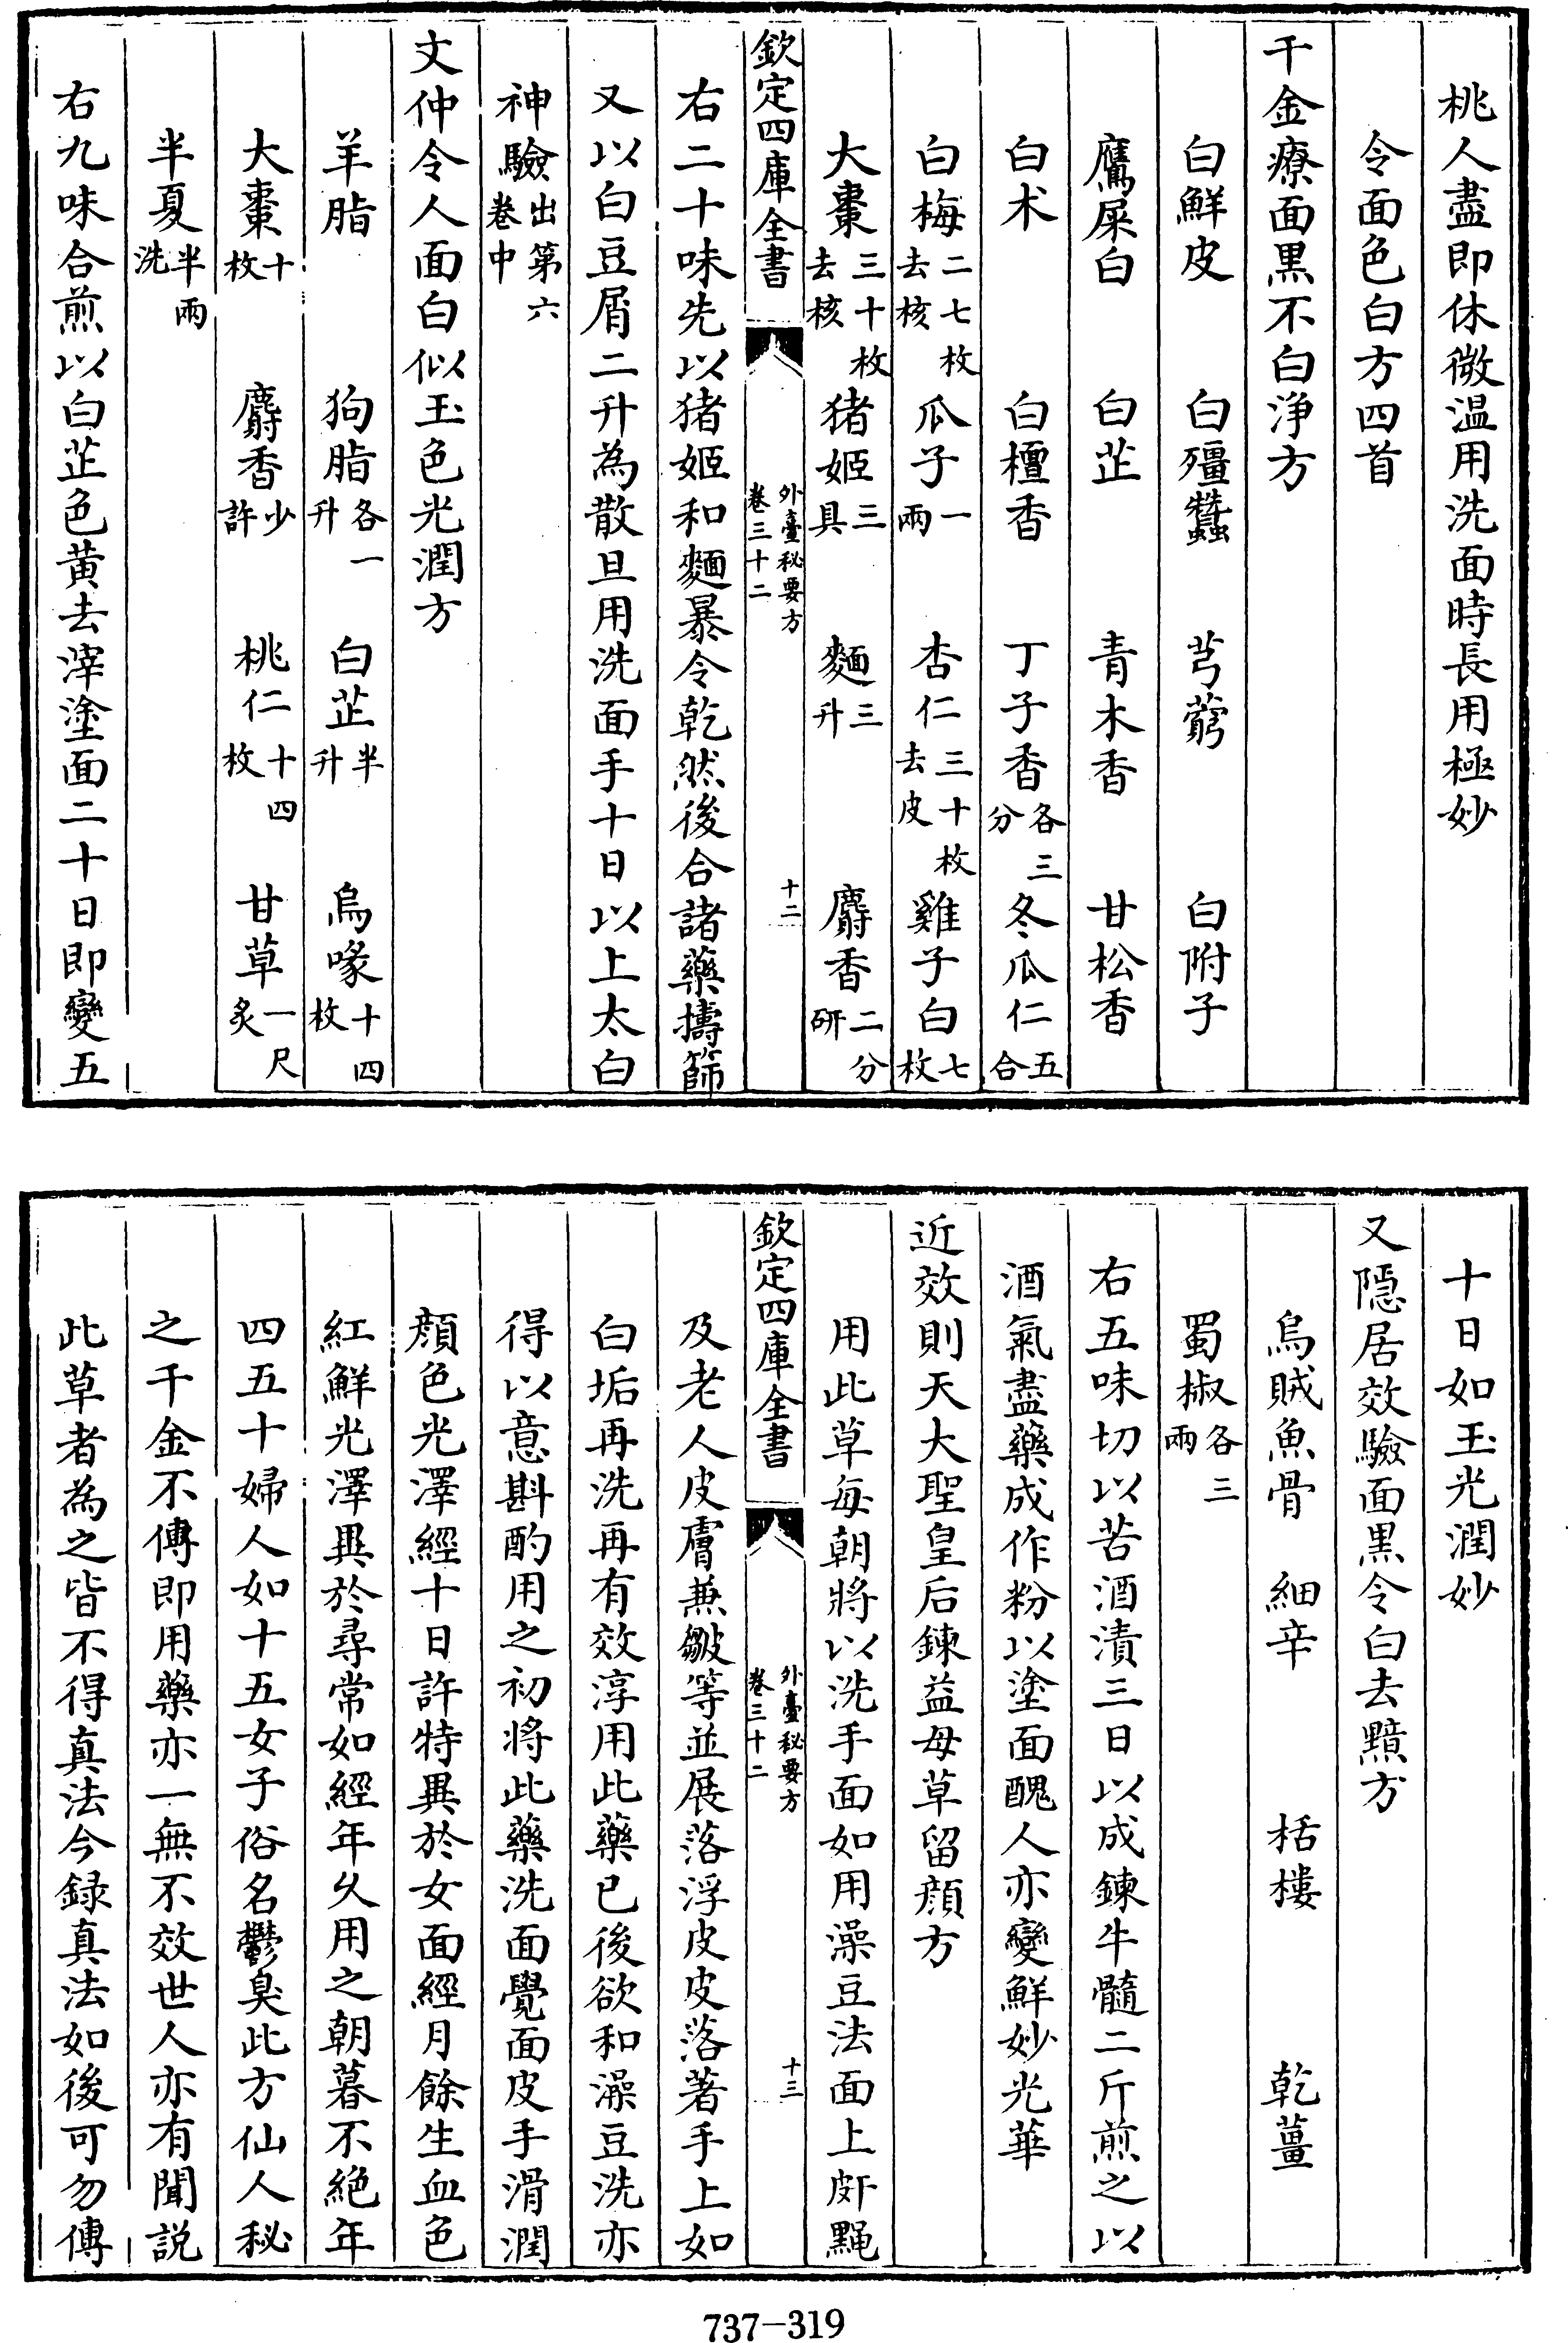 桃人盡即休微温用洗面時長用極妙
令面色白方四首
千金療面黒不白浄方
白鮮皮 白殭蠶 芎藭 白附子
鷹屎白 白芷 青木香 甘松香
白术 白檀香 丁子香各三分 冬瓜仁五合
白梅二七枚去核 瓜子一兩 杏仁三十枚去皮 雞子白七枚
大棗三十枚去核 猪姬三具 麵三升 麝香二分研
欽定四庫全書 外臺秘要方卷三十二 十二
右二十味先以猪姬和麵暴令乾然後合諸藥擣篩
又以白豆屑二升為散旦用洗面手十日以上太白
神驗出第六卷中
文仲令人面白似玉色光潤方
羊脂 狗脂各一升 白芷半升 烏喙十四枚
大棗十枚 麝香少許 桃仁十四枚 甘草一尺炙
半夏半兩洗
右九味合煎以白芷色黄去滓塗面二十日即變五
十日如玉光潤妙
又隠居效驗面黒令白去黯方
烏賊魚骨 細辛 栝樓 乾薑
蜀椒各三兩
右五味切以苦酒漬三日以成鍊牛髓二斤煎之以
酒氣盡藥成作粉以塗面醜人亦變鮮妙光華
近效則天大聖皇后鍊益母草留顔方
用此草每朝將以洗手面如用澡豆法面上皯䵴
欽定四庫全書 外臺秘要方卷三十二 十三
及老人皮膚兼皺等並展落浮皮皮落著手上如
白垢再洗再有效淳用此藥已後欲和澡豆洗亦
得以意斟酌用之初將此藥洗面覺面皮手滑潤
顔色光澤經十日許特異於女面經月餘生血色
紅鮮光澤異於尋常如經年久用之朝暮不絶年
四五十婦人如十五女子俗名鬱臭此方仙人秘
之千金不傳即用藥亦一無不效世人亦有聞説
此草者為之皆不得真法今録真法如後可勿傳
737-319